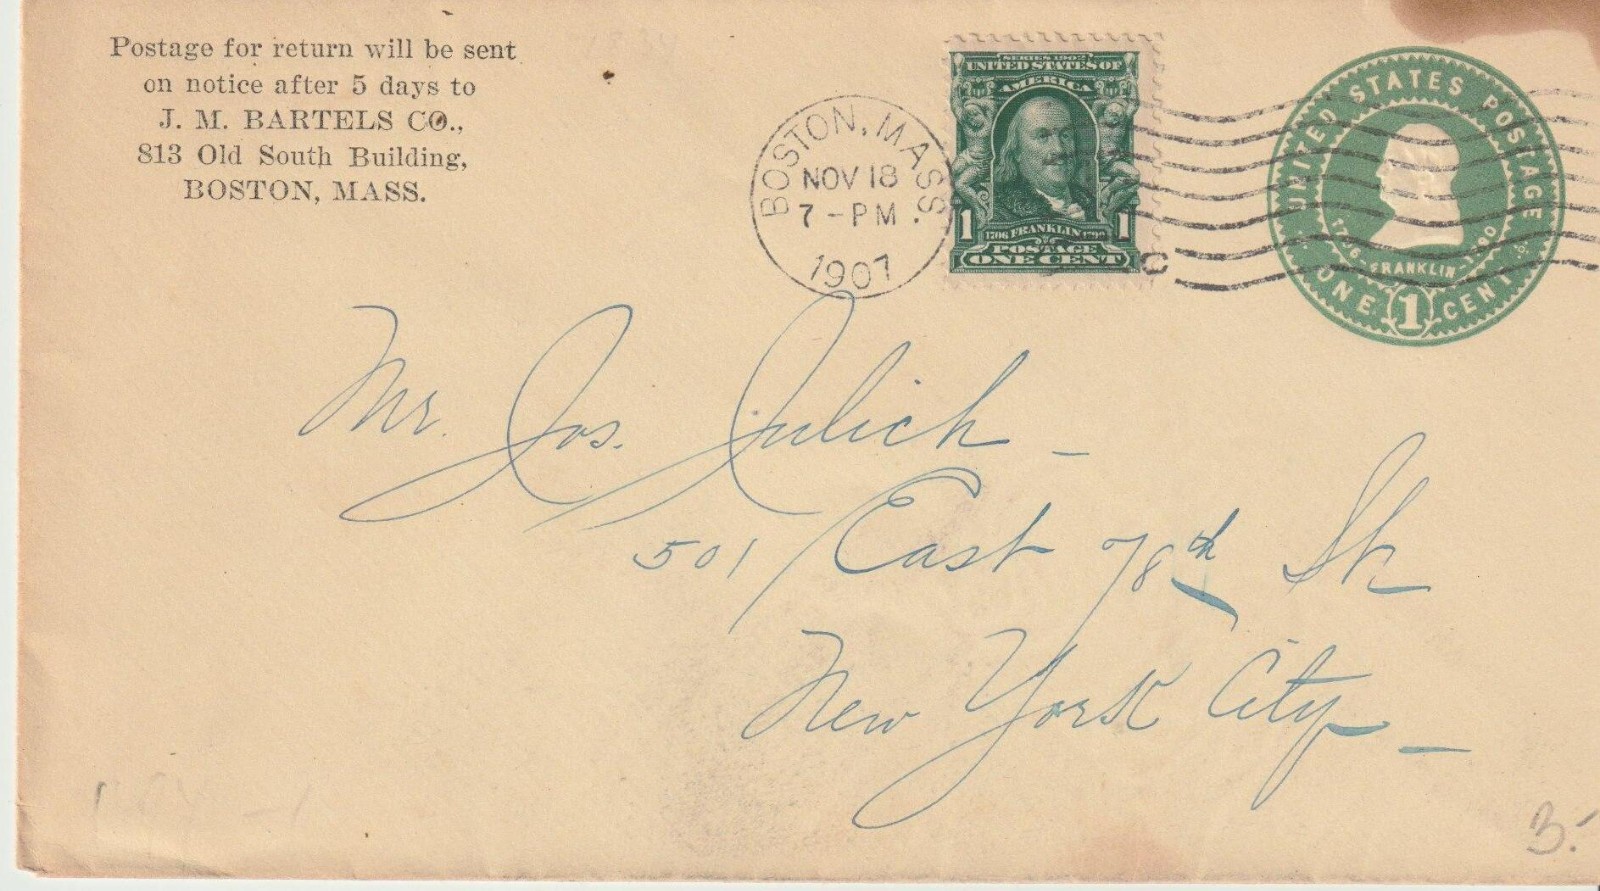 Postage for return will be sent
on notice after 5 days to
J. M. BARTELS CO.,
813 Old South Building,
BOSTON, MASS.
BOSTON, MASS.
NOV 18
7-PM
1907
SERIES 1902
UNITED STATES OF
AMERICA
1 1706 FRANKLIN 1790 1
POSTAGE
ONE CENT
UNITED STATES POSTAGE
1706-FRANKLIN-1790
ONE 1 CENT
Mr. Jos. Julich -
501 East 78th St.
New York City -
3.